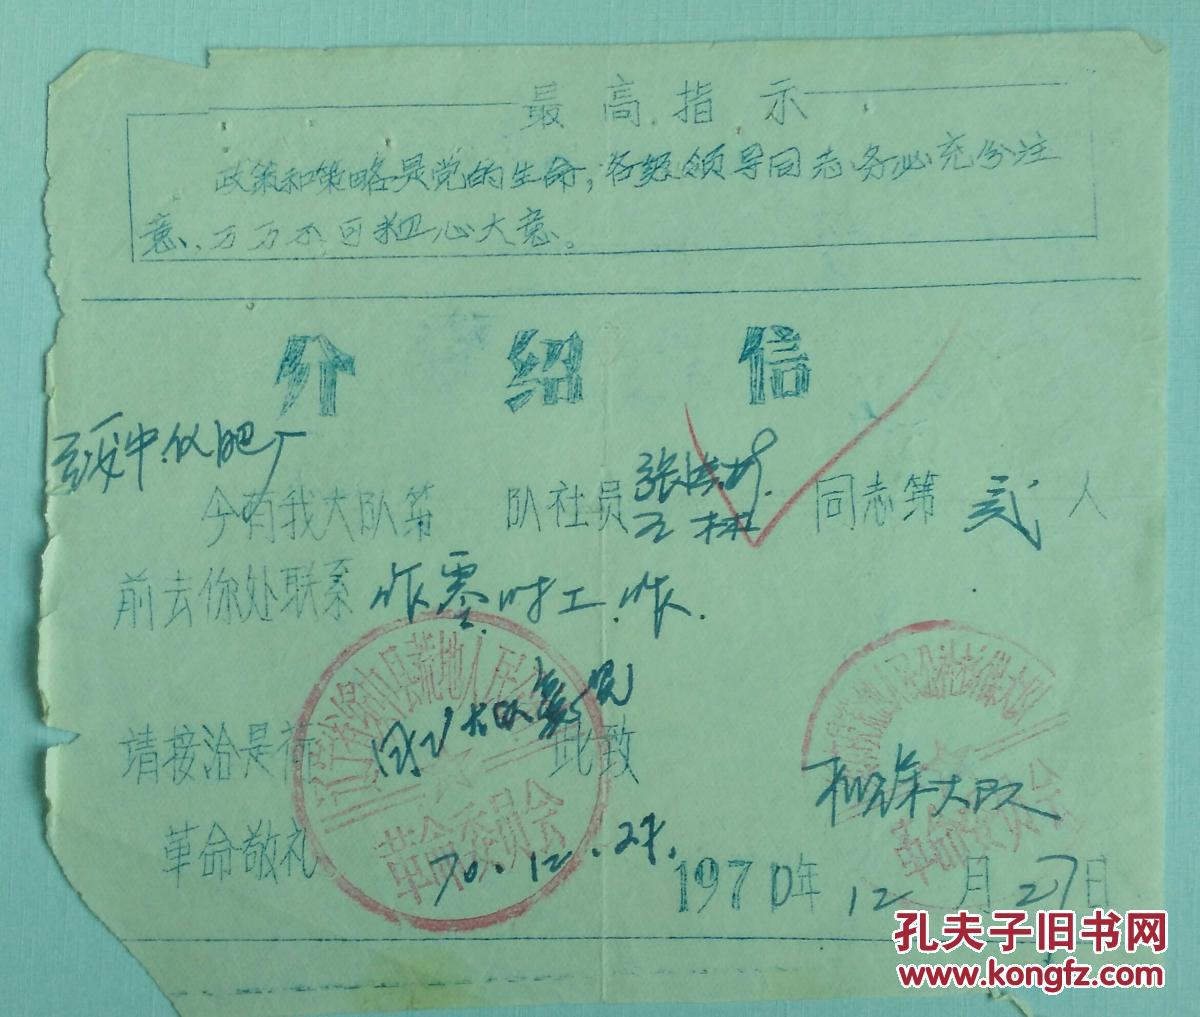 最高指示
政策和策略是党的生命，各级领导同志务必充分注
意、万万不可粗心大意。
介绍信
绥中化肥厂
今有我大队第 队社员 张 王 林 同志等 贰 人
前去你处联系 作 零时工作.
请接洽是荷 同 大队意见 此致
革命敬礼
辽宁省绥中县荒地人民公社
革命委员会
70.12.27.
人民公社 大队
革命委员会
大队
1970年12月27日
孔夫子旧书网
www.kongfz.com